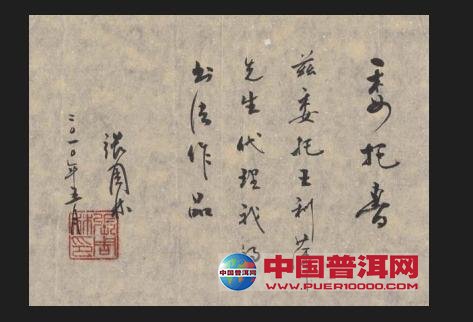 委托書
兹委托王利
先生代理我的
书法作品
張周林
二〇一〇年五月
中国普洱网
WWW.PUER10000.COM